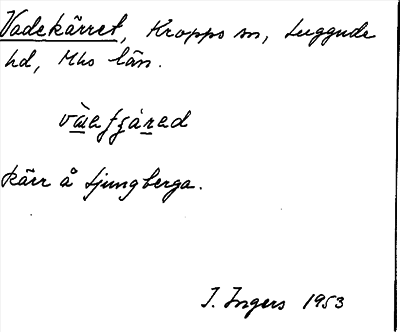 Vadekärret, Kropps sn, Luggude
hd, Mhs län.
kärr å Ljungberga.
I. Ingers 1953